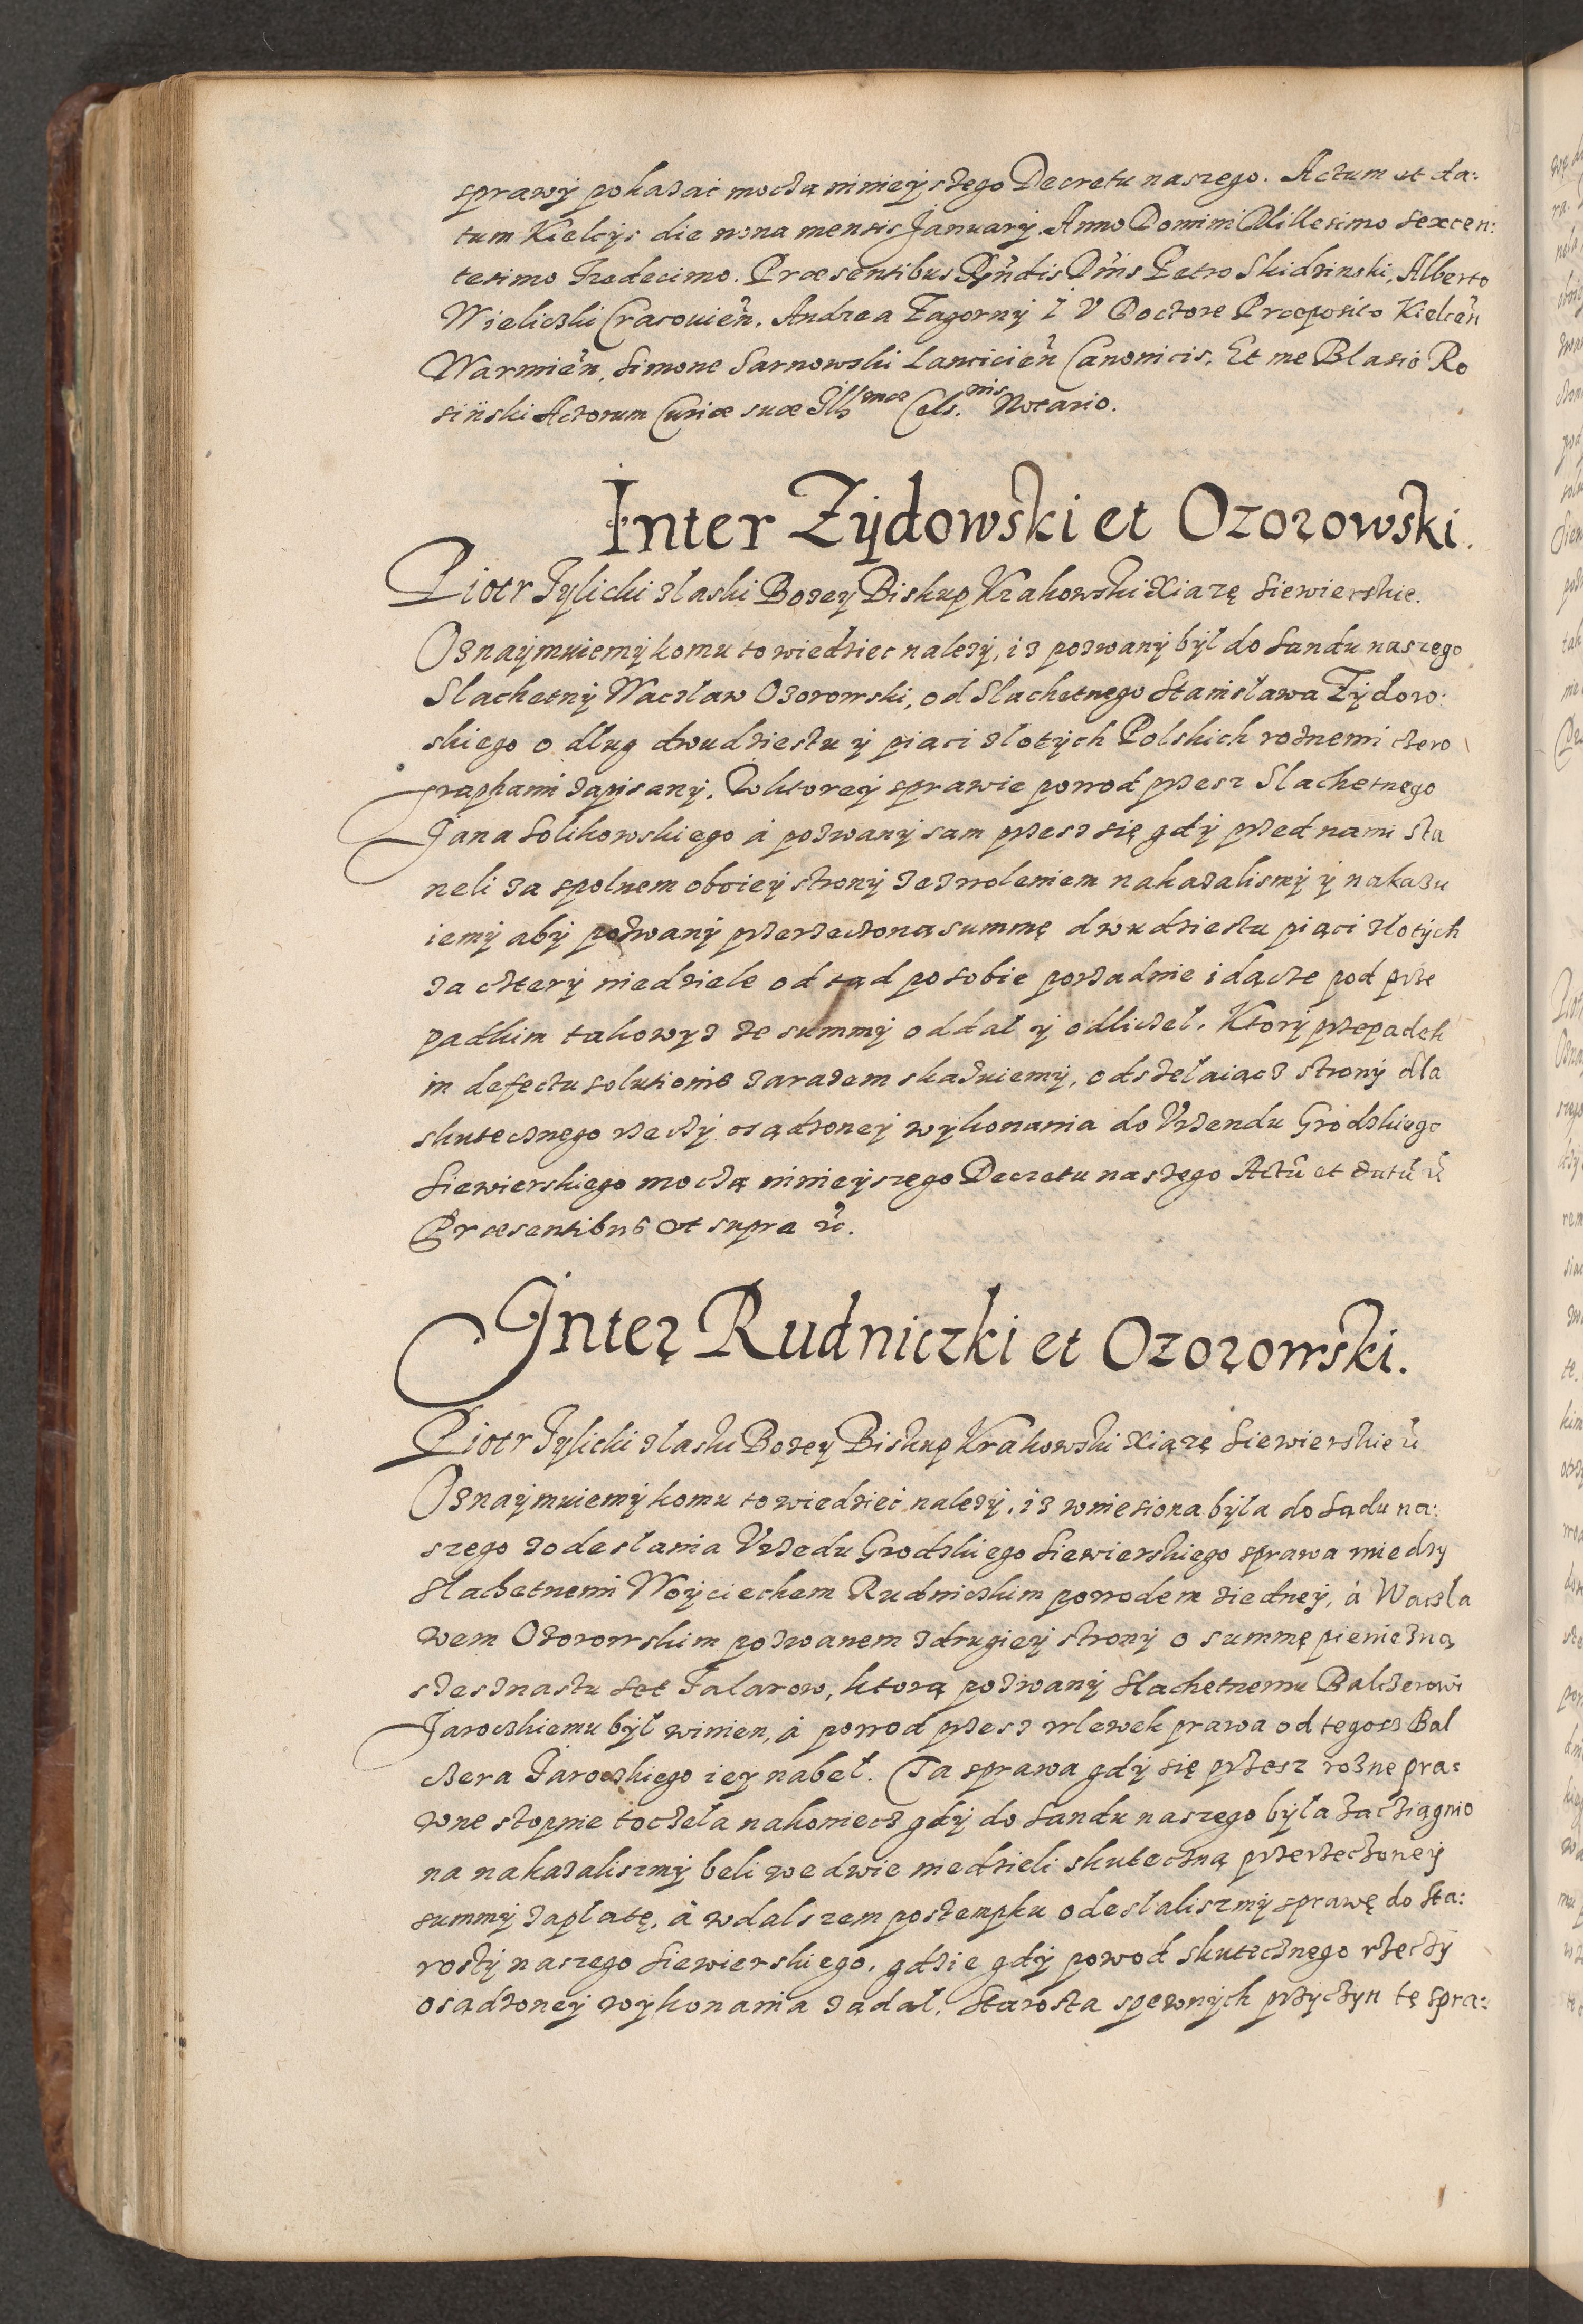 sprawÿ pokazać moczą ninieÿszego Decretu naszego. Actum et da:
tum Kielcÿs die nona mensis Januarÿ. Anno Domini Millesimo sexcen:
tesimo Tredecimo. Præsentibus Rñdis Dñis Petro Skidzinski, Alberto
Wieliczki Cracouień, Andrea Zagornÿ I V Doctore Præposito Kielceñ
Warmień, Simone Sarnowski Lancicień Canonicis. Et me Blasio Ro
siński Actorum Curiæ suæ Ill.mæ Cels.nis Notario.
Inter Zÿdowski et Ozorowski.
Piotr Tylicki z łaski Bozey Biskup Krakowski Xiązę Siewierskie.
Oznaÿmuiemÿ komu to wiedziec nalezÿ, iz pozwanÿ bÿl do Sandu naszego
Slachetnÿ Waczław Ozorowski, od Slachetnego Stanisława Zÿdow:
skiego o dług dwudziestu ÿ piąci złotÿch Polskich roznemi czero
graphami zapisanÿ. W ktoreÿ sprawie powod przesz Slachetnego
Jana Solikowskiego á pozwanÿ sam przesz się gdÿ przed nami sta
neli za spolnem oboieÿ stronÿ zezwoleniem nakazalismÿ ÿ nakazu
iemÿ abÿ pozwanÿ przerzeczoną summę dwudziestu piąci złotÿch
za czterÿ niedziele od tąd po sobie porzadnie idącze pod prze
padkim takowyz ze summÿ oddał ÿ odliczeł. Ktorÿ przepadek
in defectu solutionis zarazem skazuiemÿ, odszełaiącz stronÿ dla
skutecznego rzeczÿ osądzoneÿ wÿkonania do Vrzendu Grodzkiego
Siewierskiego moczą ninieÿszego Decretu naszego Actũ et datũ ꝛc̃
Præsentibus vt supra ꝛc̃.
Inter Rudniczki et Ozorowski.
Piotr Tylicki z łaski Bozey Biskup Krakowski Xiązę Siewierskie ꝛc̃
Oznaÿmuiemÿ komu to wiedzieć nalezÿ, iz wniesiona bÿla do Sądu na:
szego z odesłania Vrzedu Grodzkiego Siewierskiego sprawa miedzy
Slachetnemi Woÿciechem Rudniczkim powodem z iedneÿ, á Waczła
wem Ozorowskim pozwanem z drugieÿ stronÿ o summę pieniezną
szesznastu set Talarow, ktorą pozwanÿ Slachetnemu Balczerowi
Jaroczkiemu bÿł winien, á powod przesz wlewek prawa od tegosz Bal
czera Jaroczkiego ieÿ nabeł. Ta sprawa gdÿ się przesz rozne pra:
wne stopnie toczeła nakoniecz gdÿ do Sandu naszego bÿła zacziągnio
na nakazaliszmÿ beli we dwie niedzieli skuteczną przerzeczoneÿ
summÿ zapłatę, á w dalszem postempku odesłaliszmÿ sprawę do Sta:
rostÿ naszego Siewierskiego, gdzie gdÿ powod skutecznego rzeczÿ
osądzoneÿ wÿkonania ządał, Starosta spewnÿch przÿczÿn tę spra: